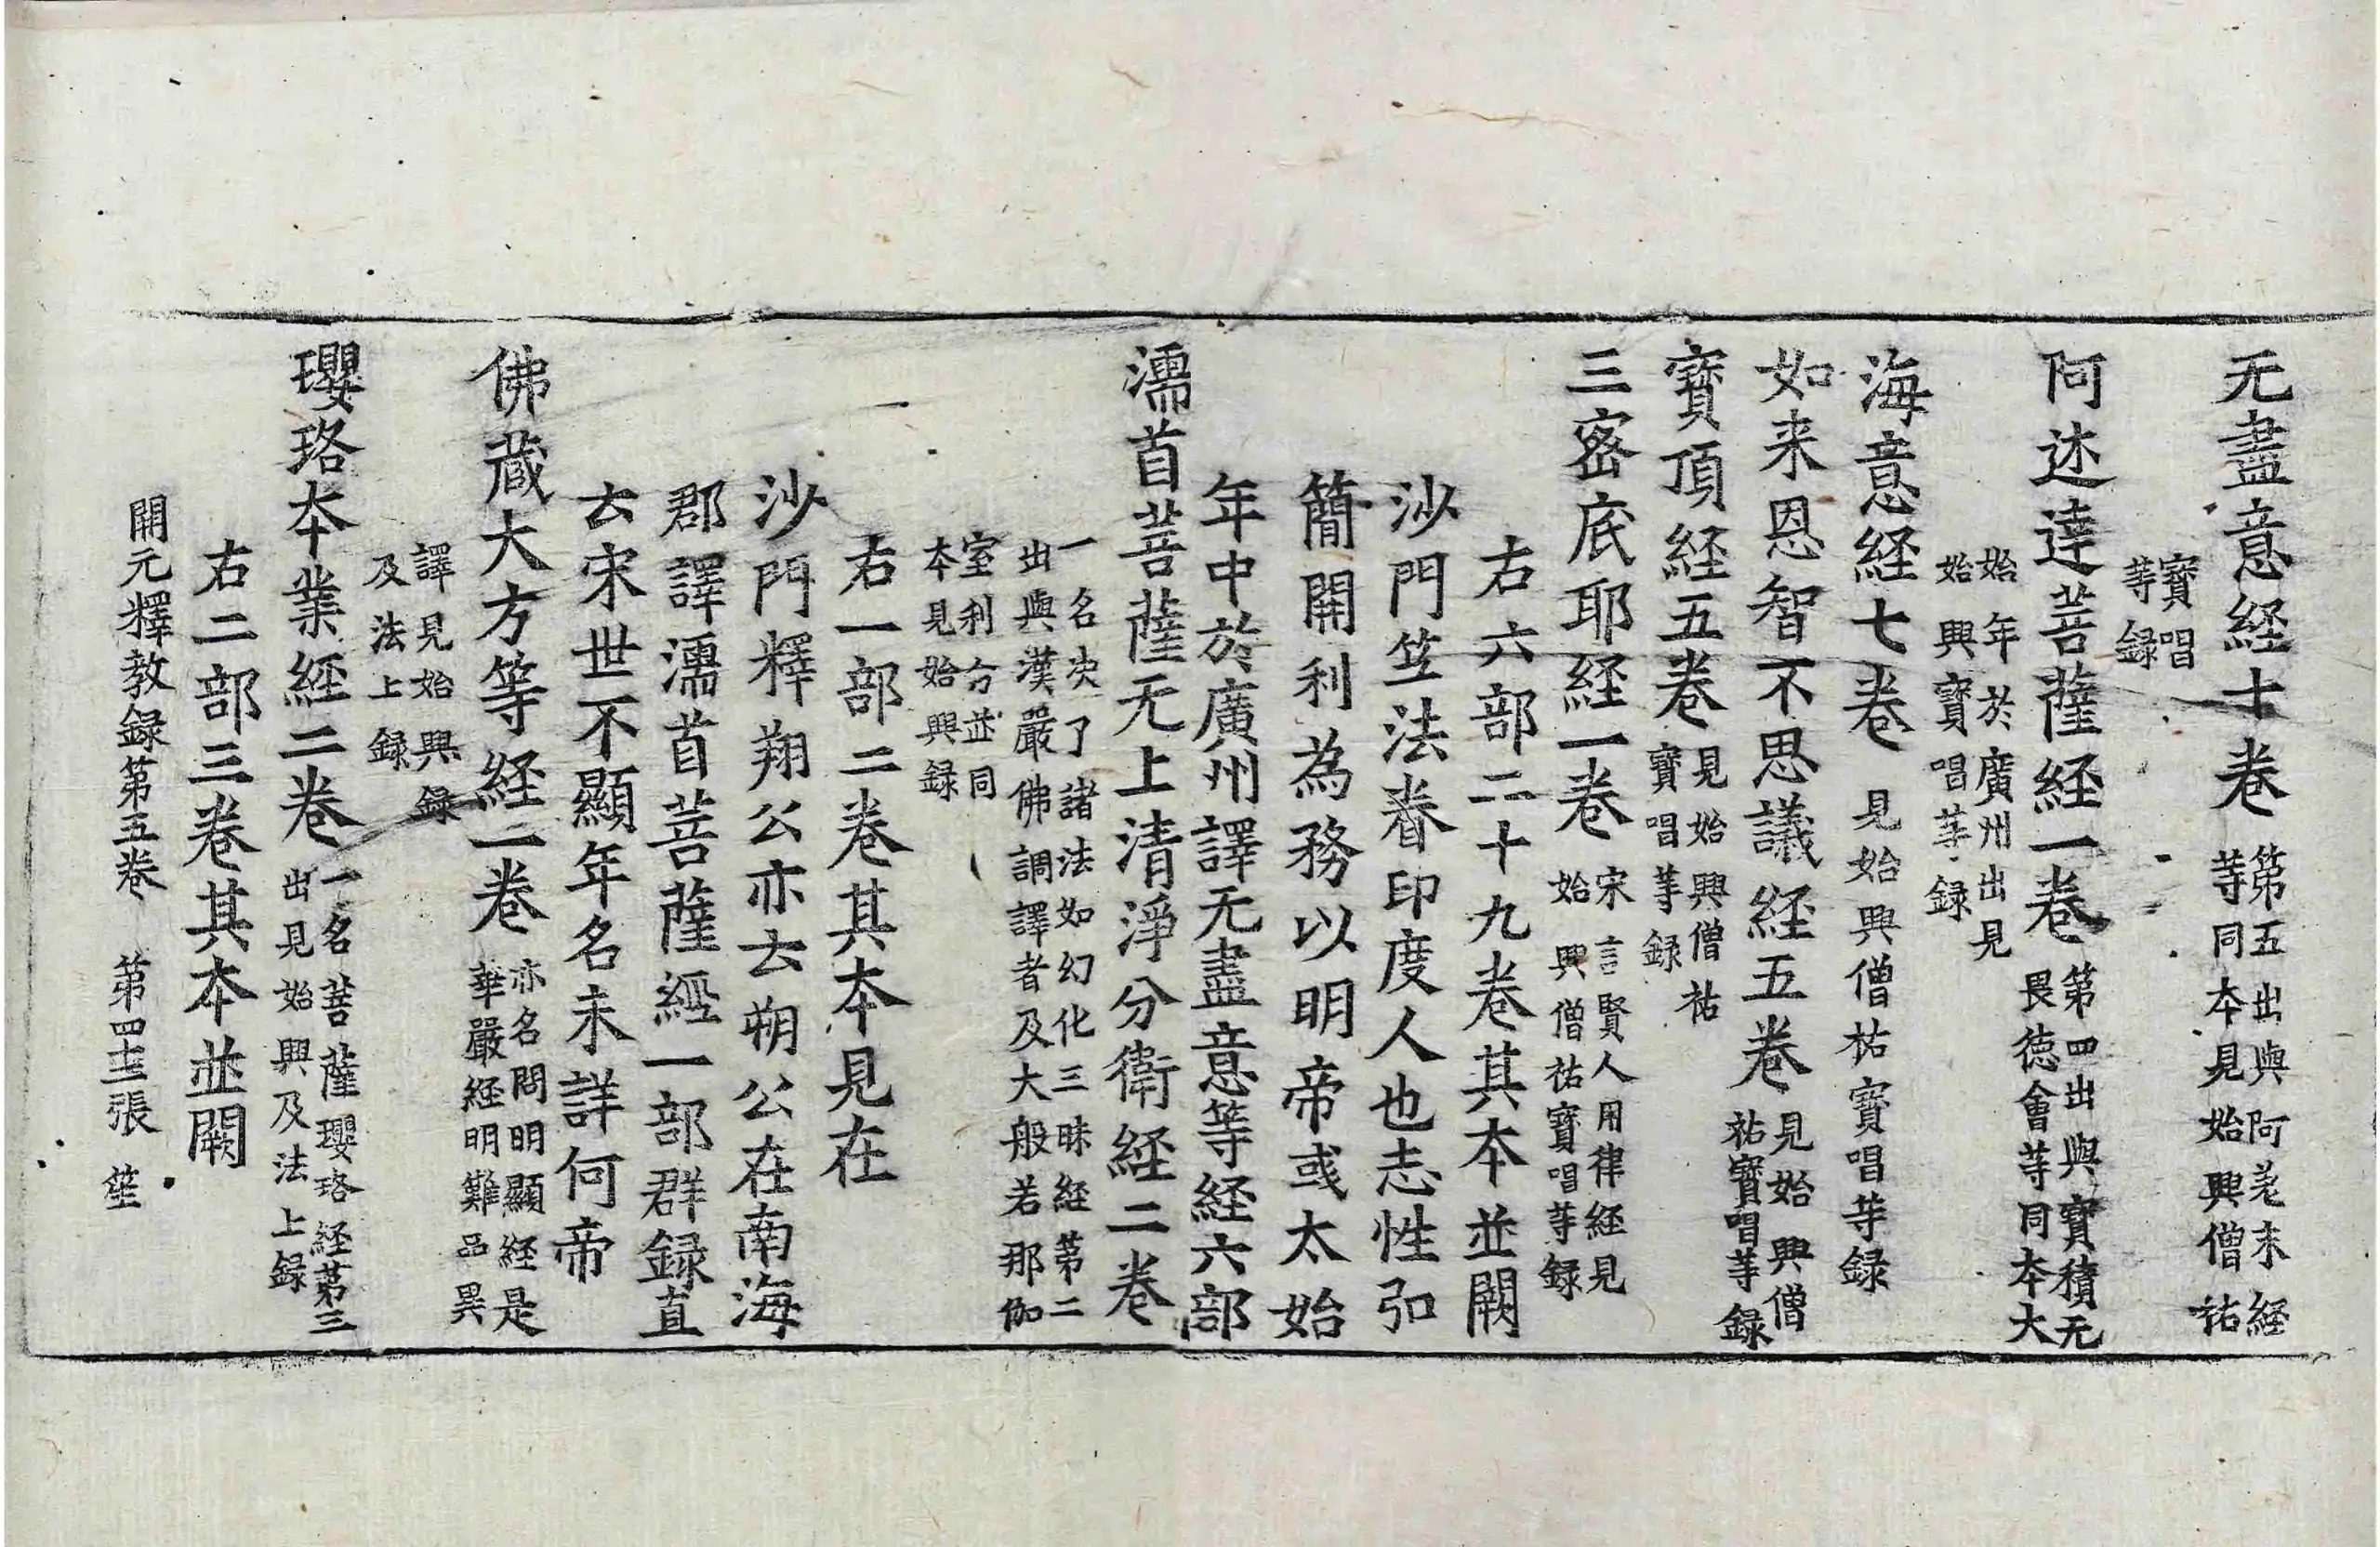 无盡意經十卷第五出與阿差末經等同本見始興僧祐
寶唱等録
阿述達菩薩經一卷第四出與寶積无畏德會等同本大
始年於廣州出見始興寶唱等録
海意經七卷見始興僧祐寶唱等録
如来恩智不思議經五卷見始興僧祐寶唱等録
寶頂經五卷見始興僧祐寶唱等録
三密底耶經一卷宋言賢人用律經見始興僧祐寶唱等録
右六部二十九卷其本並闕
沙門竺法眷印度人也志性弘
簡開利為務以明帝彧太始
年中於廣州譯无盡意等經六部
濡首菩薩无上清淨分衛經二卷
一名決了諸法如幻化三昧經第二出與漢嚴佛調譯者及大般若那伽
室利分並同本見始興録
右一部二卷其本見在
沙門釋翔公亦云朔公在南海
郡譯濡首菩薩經一部群録直
云宋世不顯年名未詳何帝
佛蔵大方等經一卷亦名問明顯經是華嚴經明難品異
譯見始興録及法上録
瓔珞本業經二卷一名菩薩瓔珞經第三出見始興及法上録
右二部三卷其本並闕
開元釋教録第五卷　第四十三張　笙